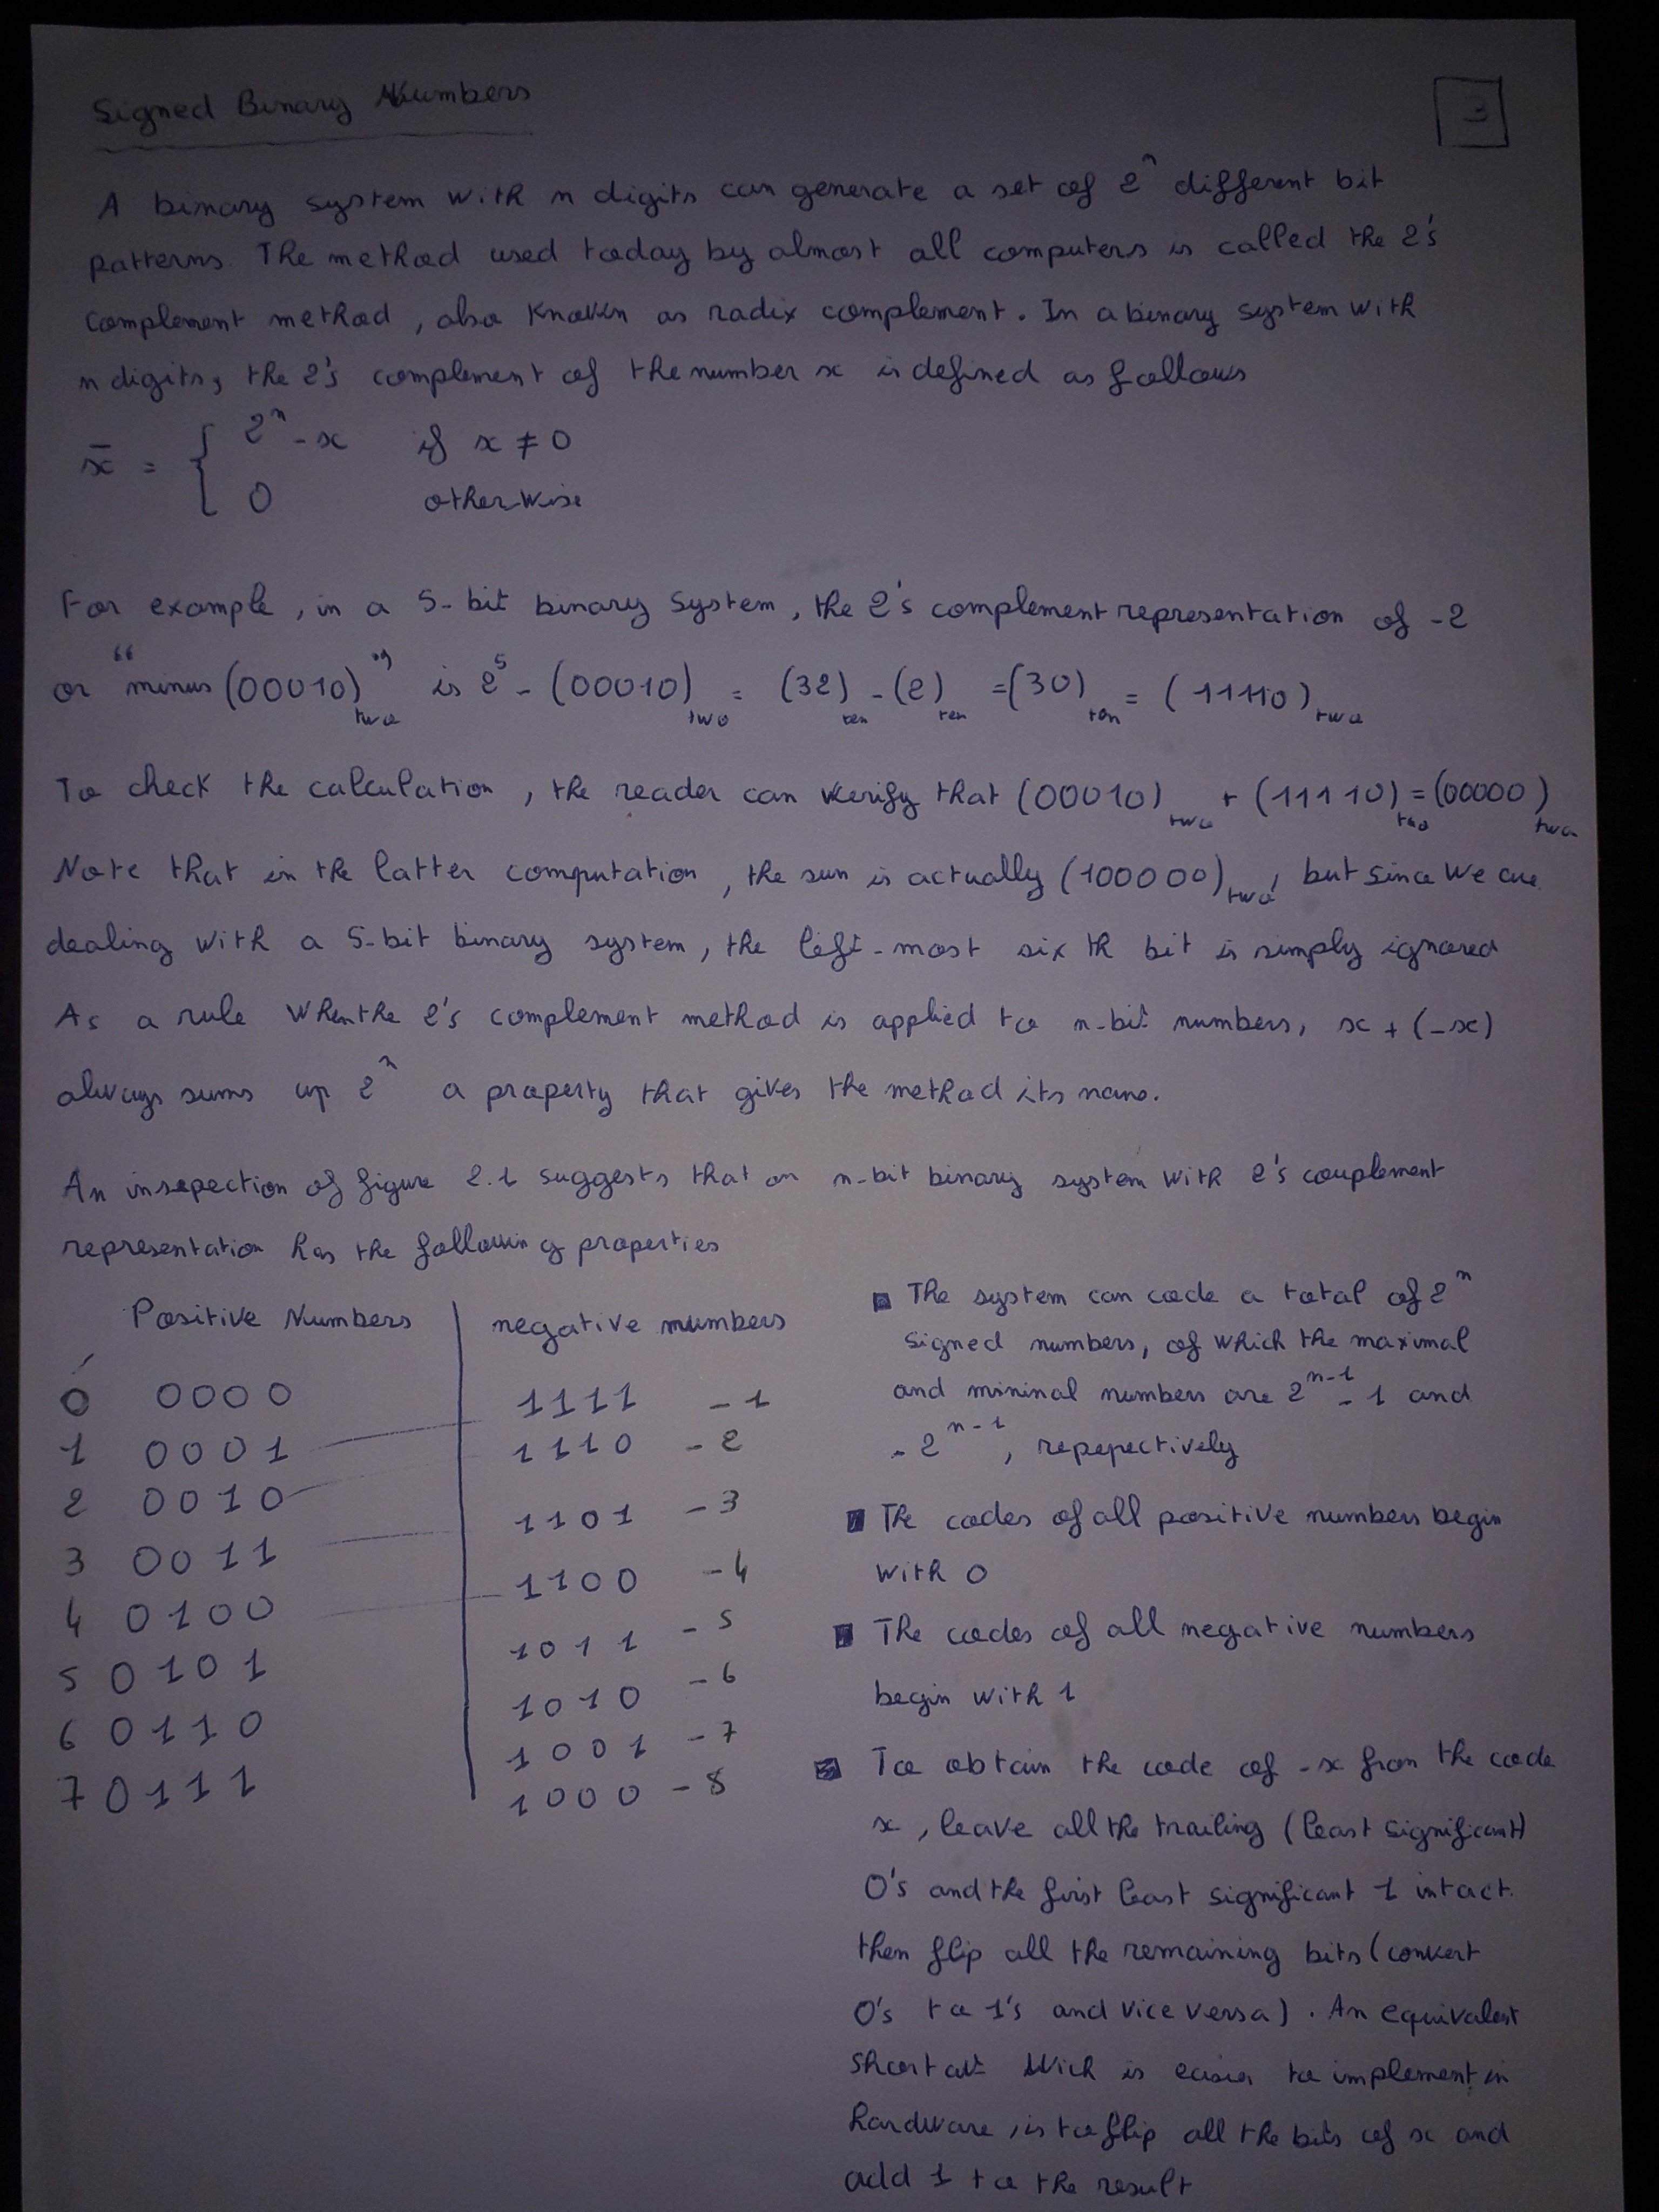 Signed Binary Numbers
3
A binary system with n digits can generate a set of 2ⁿ different bit
patterns. The method used today by almost all computers is called the 2's
complement method, also known as radix complement. In a binary system with
n digits, the 2's complement of the number x is defined as follows
x̄ = { 2ⁿ - x if x ≠ 0
0 otherwise
For example, in a 5-bit binary system, the 2's complement representation of -2
or "minus (00010)two" is 2⁵ - (00010)two = (32)ten - (2)ten = (30)ten = (11110)two
To check the calculation, the reader can verify that (00010)two + (11110)two = (00000)two
Note that in the latter computation, the sum is actually (100000)two, but since we are
dealing with a 5-bit binary system, the left-most sixth bit is simply ignored
As a rule when the 2's complement method is applied to n-bit numbers, x + (-x)
always sums up 2ⁿ a property that gives the method its name.
An insepection of figure 2.1 suggests that an n-bit binary system with 2's complement
representation has the following properties
Positive Numbers negative numbers
0 0000 1111 -1
1 0001 1110 -2
2 0010 1101 -3
3 0011 1100 -4
4 0100 1011 -5
5 0101 1010 -6
6 0110 1001 -7
7 0111 1000 -8
The system can code a total of 2ⁿ
signed numbers, of which the maximal
and mininal numbers are 2ⁿ⁻¹ - 1 and
-2ⁿ⁻¹, repepectively
The codes of all positive numbers begin
with 0
The codes of all negative numbers
begin with 1
To obtain the code of -x from the code
x, leave all the trailing (least significant)
0's and the first least significant 1 intact.
then flip all the remaining bits (convert
0's to 1's and vice versa). An equivalent
shortcut wich is easier to implement in
hardware, is to flip all the bits of x and
add 1 to the result